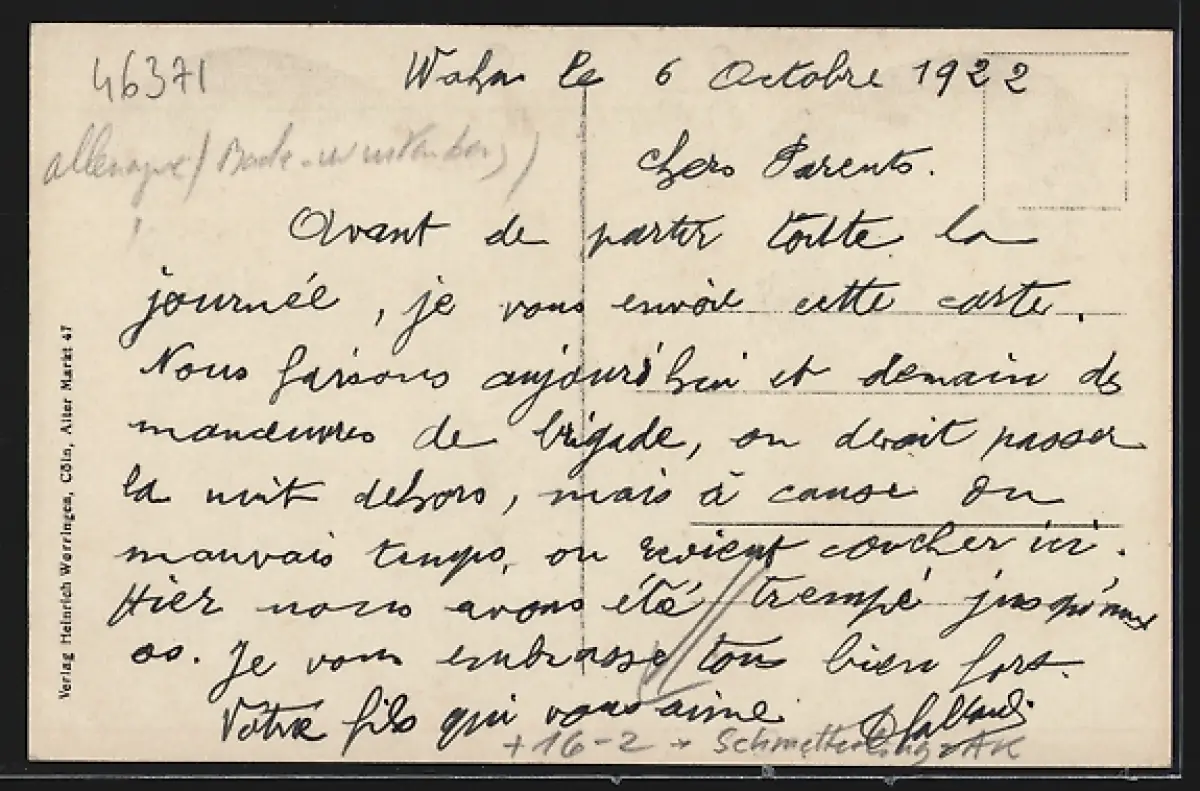 46371
Wahn le 6 Octobre 1922
allemagne/
Chers Parents.
Avant de partir toute la
journée, je vous envoie cette carte.
Nous faisons aujourd'hui et demain des
manœuvres de brigade, on devait passer
la nuit dehors, mais à cause du
mauvais temps, on revient coucher ici.
Hier nous avons été trempé jusqu'aux
os. Je vous embrasse tous bien fort.
Votre fils qui vous aime
+ 16-2 → Schmetterling AK
Verlag Heinrich Worringen, Cöln, Alter Markt 47